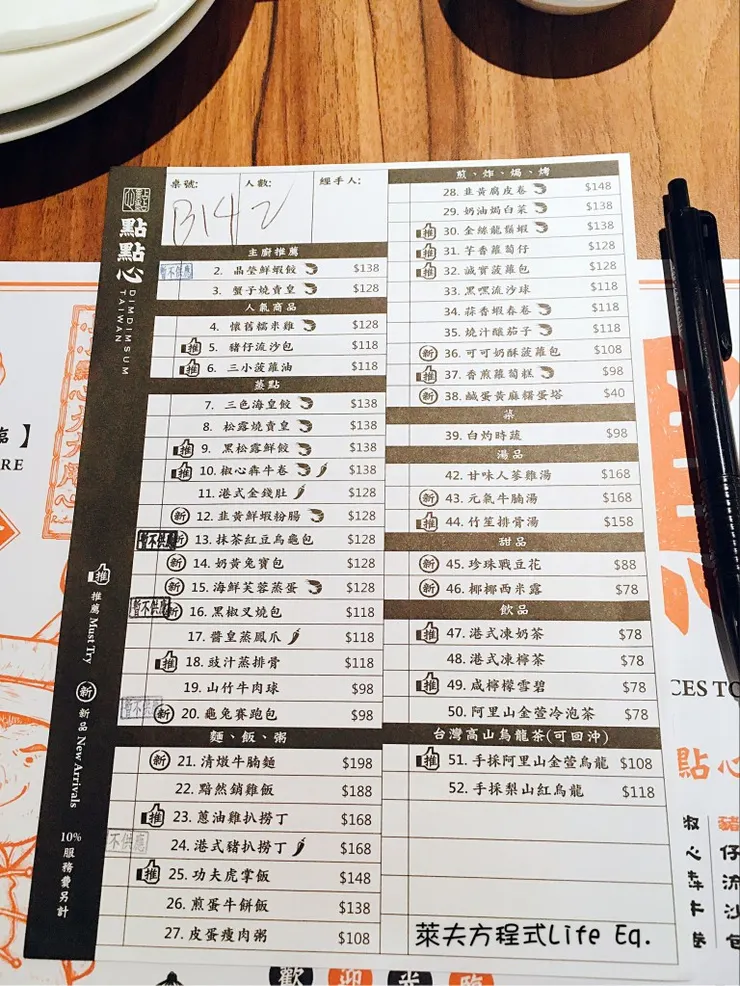 桌號:
人數:
經手人:
B14
2
點點心
DIMDIMSUM
TAIWAN
主廚推薦
暫不供應
2. 晶瑩鮮蝦餃 $138
3. 蟹子燒賣皇 $128
人氣商品
4. 懷舊糯米雞 $128
推 5. 豬仔流沙包 $118
推 6. 三小菠蘿油 $118
蒸點
7. 三色海皇餃 $138
8. 松露燒賣皇 $138
推 9. 黑松露鮮餃 $138
推 10. 椒心犇牛卷 $138
11. 港式金錢肚 $128
新 12. 韭黃鮮蝦粉腸 $128
暫不供應 新 13. 抹茶紅豆烏龜包 $128
新 14. 奶黃兔寶包 $128
新 15. 海鮮芙蓉蒸蛋 $128
暫不供應 新 16. 黑椒叉燒包 $118
17. 醬皇蒸鳳爪 $118
推 18. 豉汁蒸排骨 $118
19. 山竹牛肉球 $98
暫不供應 新 20. 龜兔賽跑包 $98
麵、飯、粥
新 21. 清燉牛腩麵 $198
22. 黯然銷雞飯 $188
推 23. 蔥油雞扒撈丁 $168
暫不供應 24. 港式豬扒撈丁 $168
推 25. 功夫虎掌飯 $148
26. 煎蛋牛餅飯 $138
27. 皮蛋瘦肉粥 $108
煎、炸、焗、烤
28. 韭黃腐皮卷 $148
29. 奶油焗白菜 $138
推 30. 金絲龍鬚蝦 $138
推 31. 芋香蘿蔔仔 $128
推 32. 誠實菠蘿包 $128
33. 黑嘿流沙球 $118
34. 蒜香蝦春卷 $118
35. 燒汁釀茄子 $118
新 36. 可可奶酥菠蘿包 $108
推 37. 香煎蘿蔔糕 $98
新 38. 鹹蛋黃麻糬蛋塔 $40
菜
39. 白灼時蔬 $98
湯品
42. 甘味人蔘雞湯 $168
新 43. 元氣牛腩湯 $168
推 44. 竹笙排骨湯 $158
甜品
新 45. 珍珠戰豆花 $88
新 46. 椰椰西米露 $78
飲品
推 47. 港式凍奶茶 $78
48. 港式凍檸茶 $78
推 49. 咸檸檬雪碧 $78
50. 阿里山金萱冷泡茶 $78
台灣高山烏龍茶(可回沖)
推 51. 手採阿里山金萱烏龍 $108
52. 手採梨山紅烏龍 $118
推 推薦 Must Try
新 新品 New Arrivals
10%服務費另計
萊夫方程式Life Eq.
臨】
RE
CES TO
點心
椒心犇牛卷
豬仔流沙包
歡迎光臨